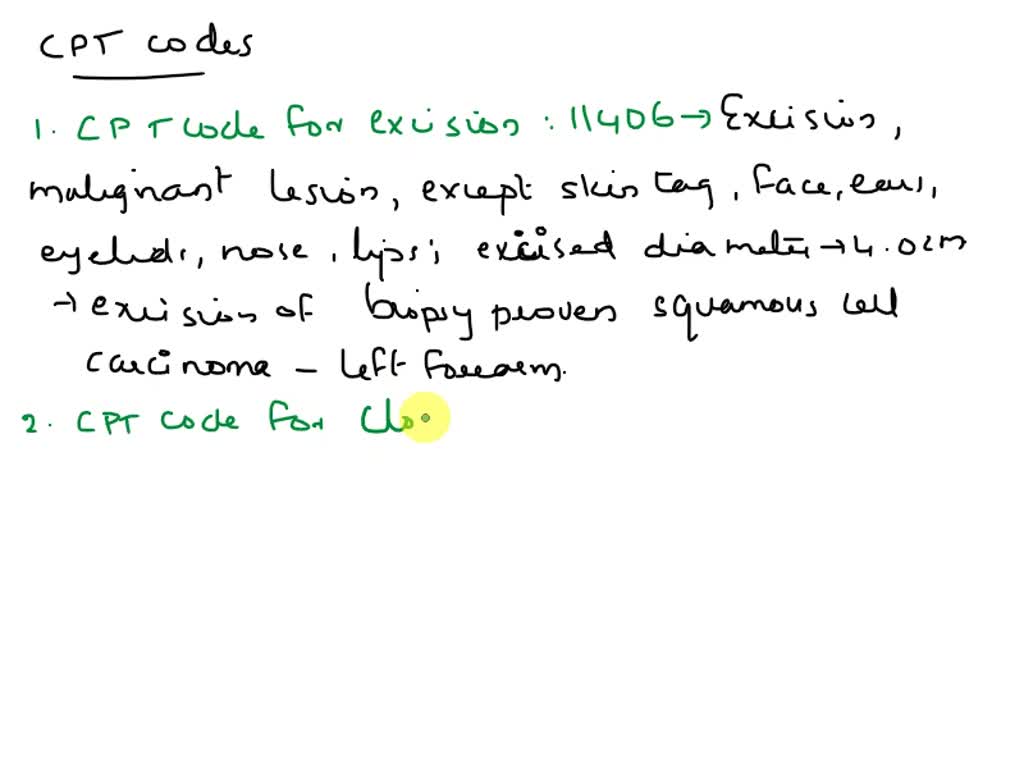 CPT codes
1. CPT code for excision : 11406 → Excision,
malignant lesion, except skin tag, face, ears,
eyelids, nose, lips; excised diameter → 4.0cm
→ excision of biopsy proven squamous cell
carcinoma - left forearm.
2. CPT code for Clo